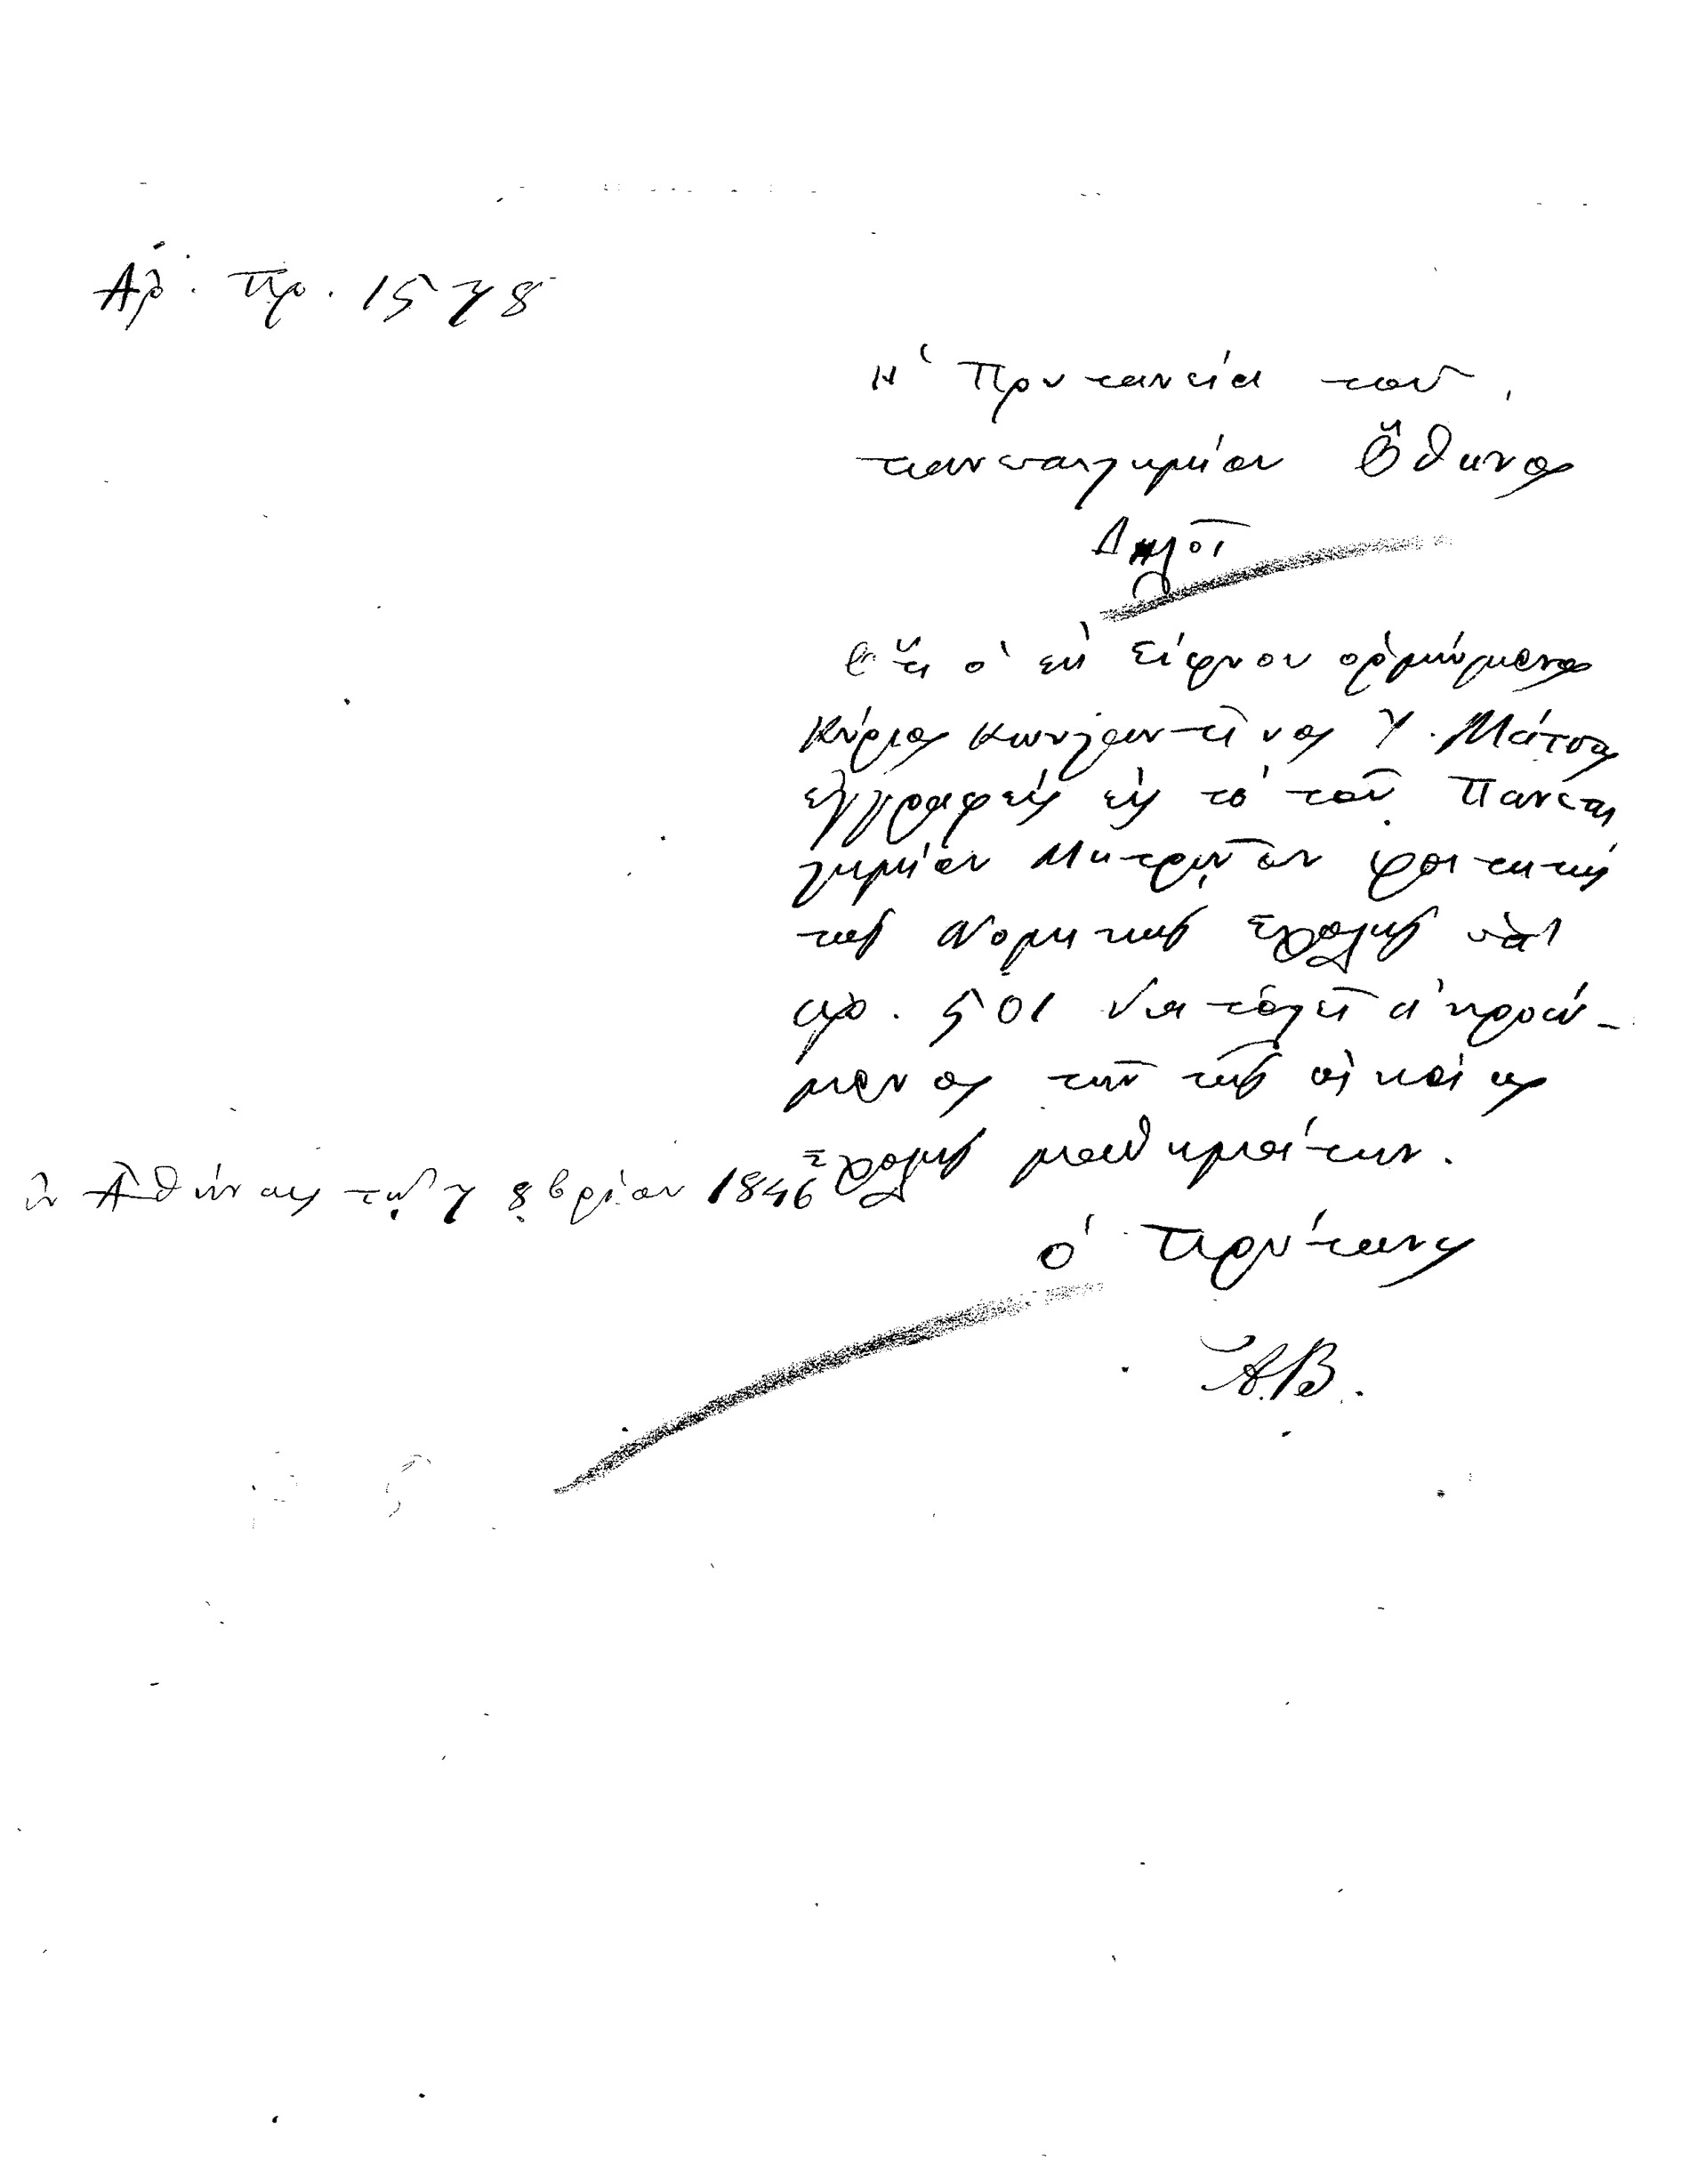 Ἀρ. Πρ. 1578
Ἡ Πρυτανεία τοῦ
πανεπιστημίου Ὄθωνος
Δηλοῖ
Ὅτι ὁ ἐκ Σίφνου ὁρμώμενος
Κύριος Κωνσταντῖνος Γ. Μάτσας
ἐγγραφεὶς εἰς τὸ τοῦ Πανεπι
στημίου Μητρῷον φοιτητὴς
τῆς Νομικῆς Σχολῆς ὑπ'
ἀρ. 501 διατελεῖ ἀκροώ-
μενος τῶν τῆς οἰκείας
Σχολῆς μαθημάτων.
ἐν Ἀθήναις τῇ 7 8βρίου 1846
Ὁ Πρύτανις
Α.Β.